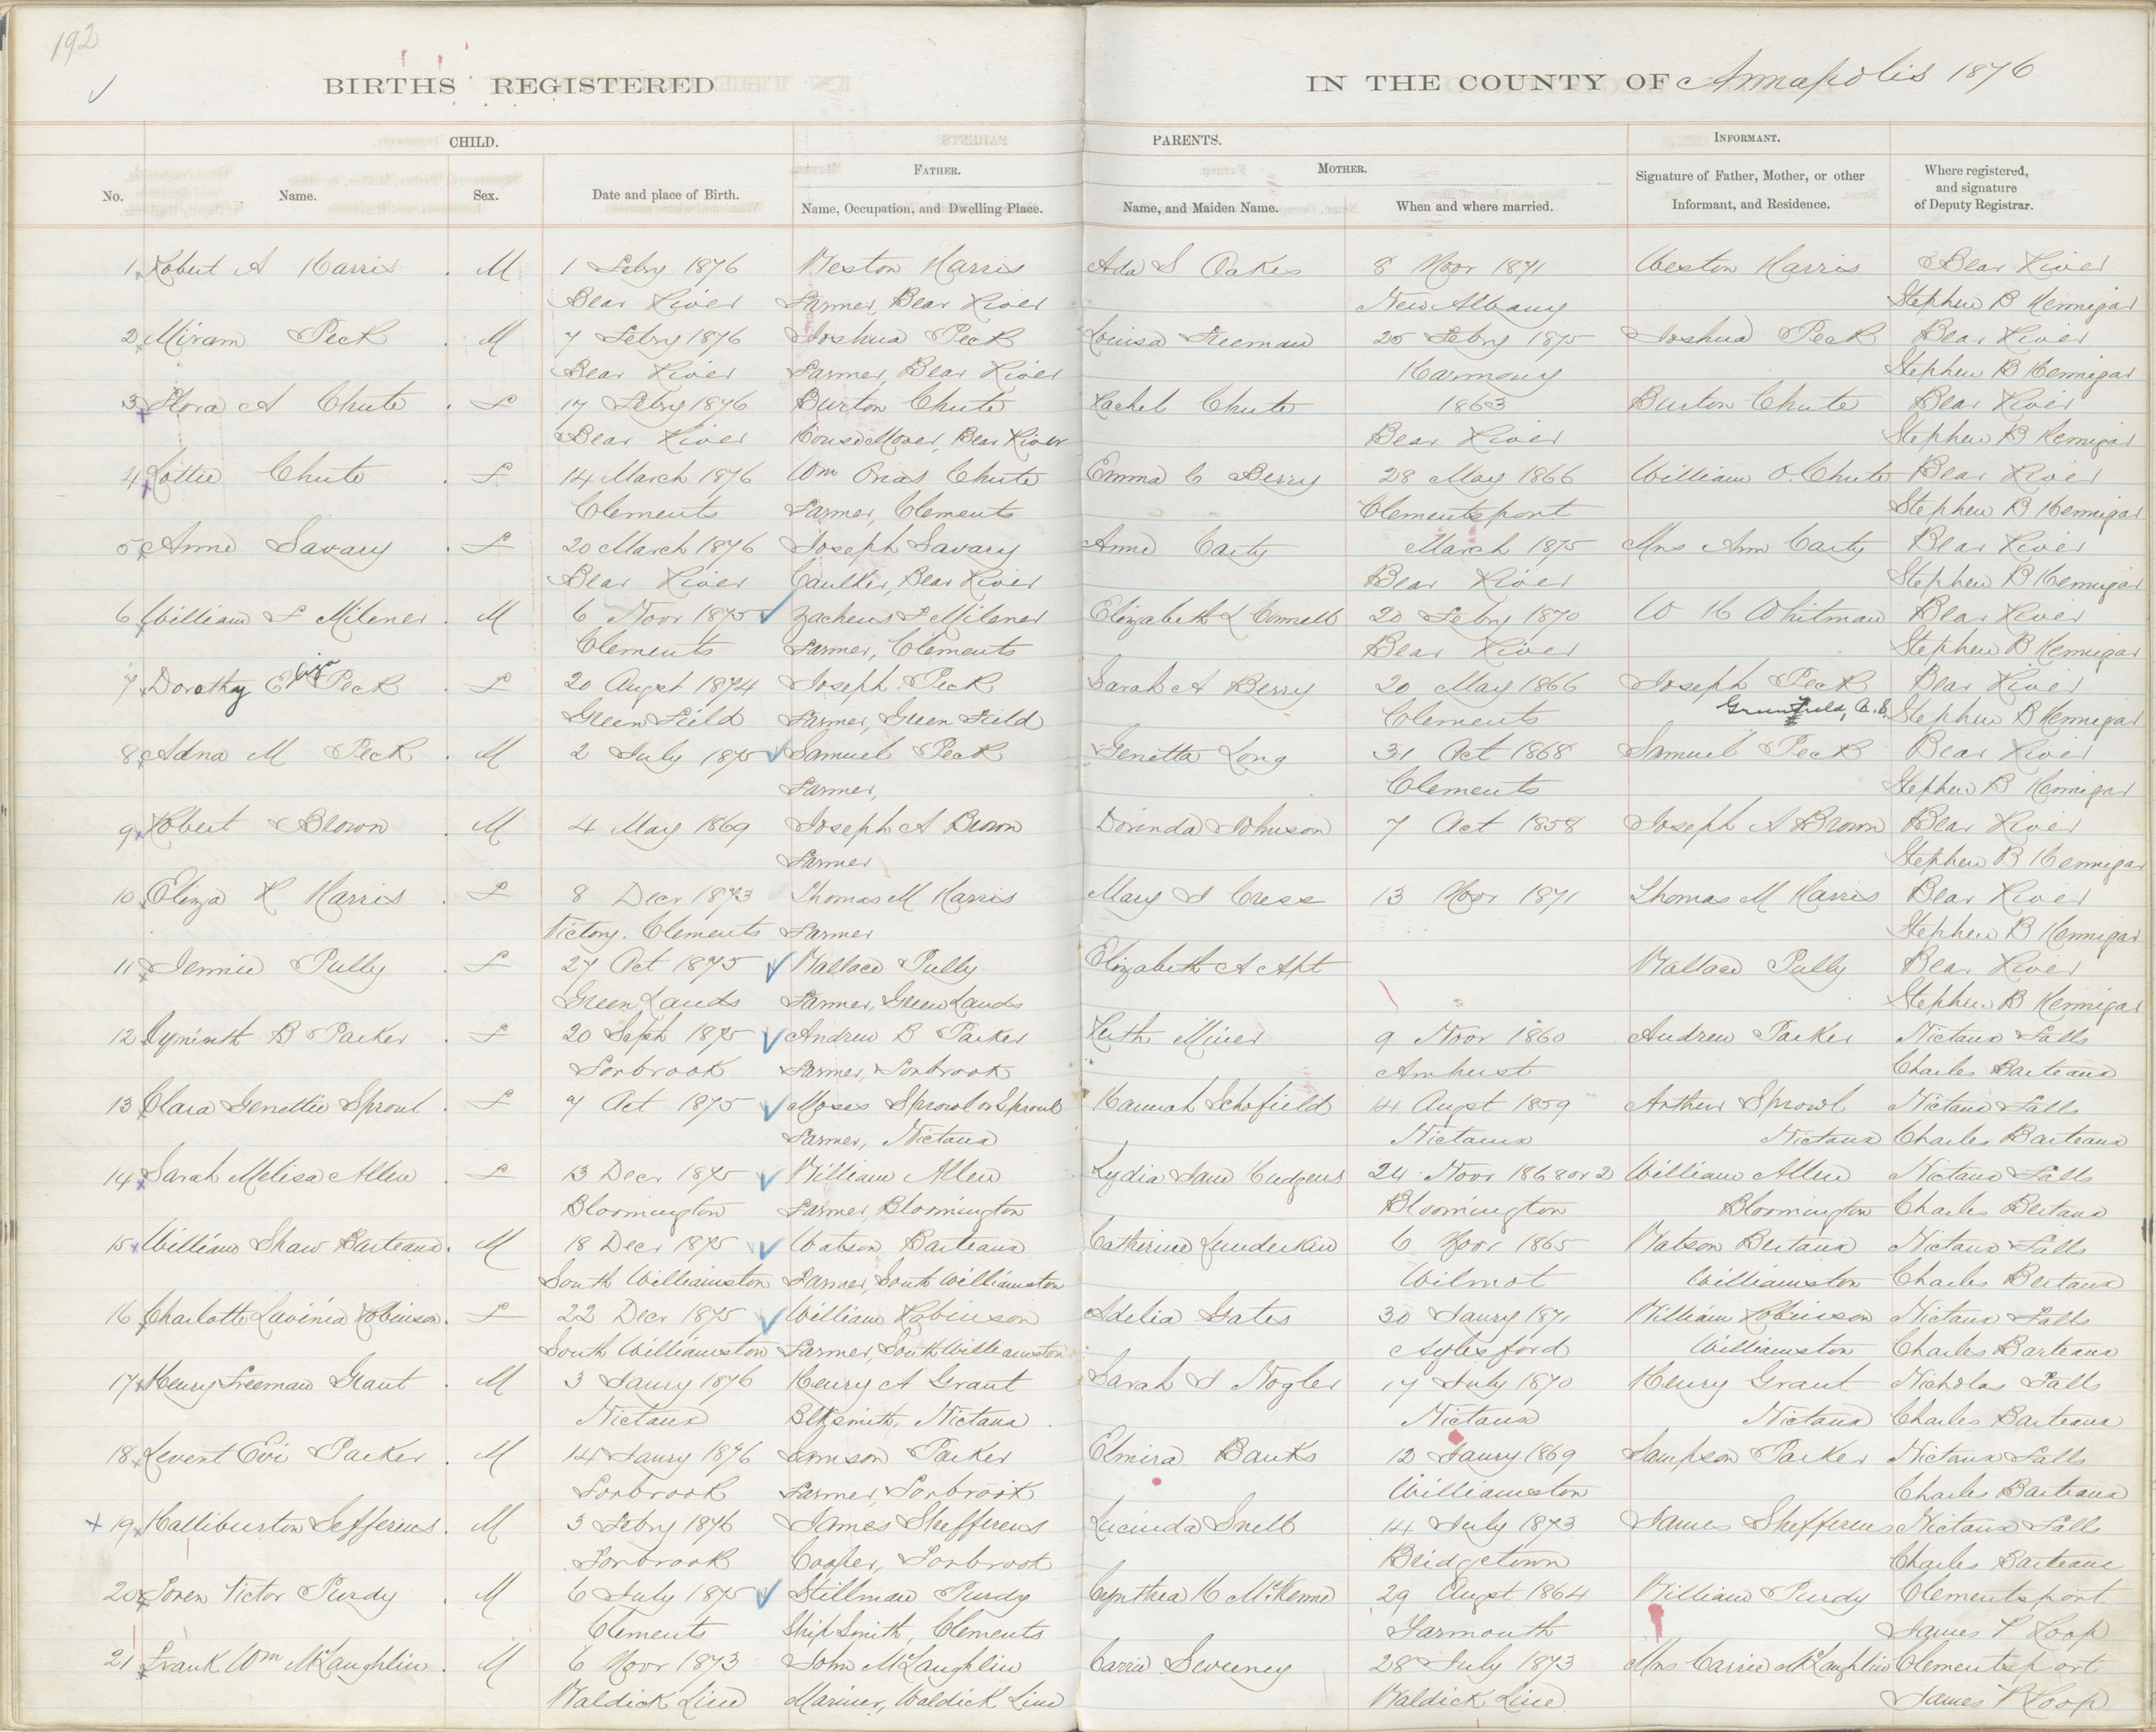 192
BIRTHS REGISTERED IN THE COUNTY OF Annapolis 1876
CHILD. PARENTS. INFORMANT.
FATHER. MOTHER.
No. Name. Sex. Date and place of Birth. Name, Occupation, and Dwelling Place. Name, and Maiden Name. When and where married. Signature of Father, Mother, or other Informant, and Residence. Where registered, and signature of Deputy Registrar.
1 Robert A Harris M 1 Febry 1876 Weston Harris Ada S Oakes 8 Novr 1871 Weston Harris Bear River
Bear River Farmer, Bear River New Albany Stephen B Hennigar
2 Miram Peck M 7 Febry 1876 Joshua Peck Louisa Freeman 25 Febry 1875 Joshua Peck Bear River
Bear River Farmer, Bear River Harmony Stephen B Hennigar
3 Flora A Chute F 17 Febry 1876 Burton Chute Rachel Chute 1863 Burton Chute Bear River
Bear River House Mover, Bear River Bear River Stephen B Hennigar
4 Lottie Chute F 14 March 1876 Wm Orias Chute Emma C Berry 28 May 1866 William O. Chute Bear River
Clements Farmer, Clements Clementsport Stephen B Hennigar
5 Anne Savary F 20 March 1876 Joseph Savary Anne Carty March 1875 Mrs Ann Carty Bear River
Bear River Caulker, Bear River Bear River Stephen B Hennigar
6 William F Milener M 6 Novr 1875 Zacheus F Milener Elizabeth L Connell 20 Febry 1870 W H Whitman Bear River
Clements Farmer, Clements Bear River Stephen B Hennigar
7 Dorothy Eliza Peck F 20 Augst 1874 Joseph Peck Sarah A Berry 20 May 1866 Joseph Peck Bear River
Green Field Farmer, Green Field Clements Greenfield, Stephen B Hennigar
8 Adna M Peck M 2 July 1875 Samuel Peck Genetta Long 31 Oct 1868 Samuel Peck Bear River
Farmer, Clements Stephen B Hennigar
9 Robert Brown M 4 May 1869 Joseph A Brown Dorinda Johnson 7 Oct 1858 Joseph A Brown Bear River
Farmer Stephen B Hennigar
10 Eliza R Harris F 8 Decr 1873 Thomas M Harris Mary J Cress 13 Novr 1871 Thomas M Harris Bear River
Victory. Clements Farmer Stephen B Hennigar
11 Jennie Pully F 27 Oct 1875 Wallace Pully Elizabeth A Apt Wallace Pully Bear River
Green Lands Farmer, Green Lands Stephen B Hennigar
12 B Parker F 20 Seph 1875 Andrew B Parker Ruth Miner 9 Novr 1860 Andrew Parker Nictaux Falls
Torbrook Farmer, Torbrook Amhust Charles Barteaux
13 Clara Genettie Sproul F 7 Oct 1875 Moses Sprowl or Sproul Hannah Schofield 14 Augst 1859 Arthur Sprowl Nictaux Falls
Farmer, Nictaux Nictaux Nictaux Charles Barteaux
14 Sarah Melisa Allen F 13 Decr 1875 William Allen Lydia Jane Hudgens 24 Novr 1868 or 2 William Allen Nictaux Falls
Bloomington Farmer, Bloomington Bloomington Bloomington Charles Bertaux
15 William Shaw Barteaux M 18 Decr 1875 Watson Barteaux Catherine Lunderkin 6 Novr 1865 Watson Bertaux Nictaux Falls
South Williamston Farmer, South Williamston Wilmot Williamston Charles Bertaux
16 Charlotte Lavinia Robinson F 22 Decr 1875 William Robinson Adelia Gates 30 Janry 1871 William Robinson Nictaux Falls
South Williamston Farmer, South Williamston Aylesford Williamston Charles Barteaux
17 Henry Freeman Grant M 3 Janry 1876 Henry A Grant Sarah J Nogler 17 July 1870 Henry Grant Nicholas Falls
Nictaux Blksmith, Nictaux Nictaux Nictaux Charles Barteaux
18 Levent Evi Parker M 14 Janry 1876 Samson Parker Elmira Banks 12 Janry 1869 Sampson Parker Nictaux Falls
Torbrook Farmer, Torbrook Williamston Charles Barteaux
19 Halliburton Sefferens M 3 Febry 1876 James Shefferens Lucinda Snell 14 July 1873 James Shefferens Nictaux Falls
Torbrook Cooper, Torbrook Bridgetown Charles Barteaux
20 Loren Victor Purdy M 6 July 1875 Stillman Purdy Cynthea H McKenne 29 Augst 1864 William Purdy Clementsport
Clements Ship Smith, Clements Yarmouth James P Roop
21 Frank Wm McLaughlin M 6 Novr 1873 John McLaughlin Carrie Sweeney 28 July 1873 Mrs Carrie McLaughlin Clementsport
Waldick Line Mariner, Waldick Line Waldick Line James P Roop